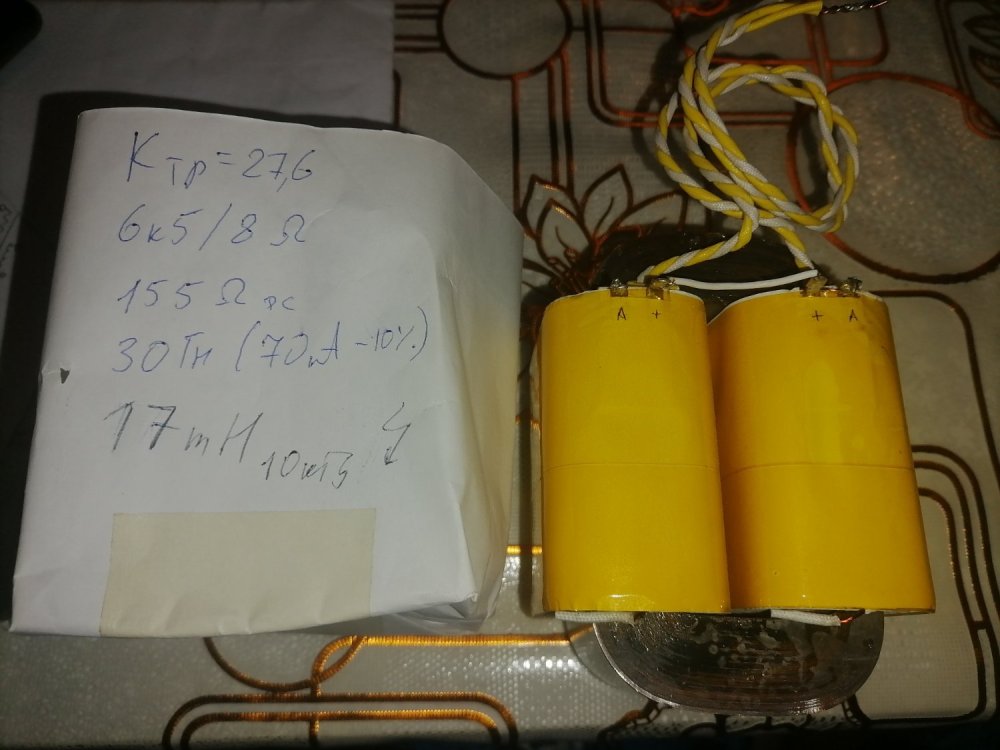 Kтр=27,6
6к5/8 Ω
155 Ω
30Гн (70mA -10%)
17mH 10кГц
A +
+ A